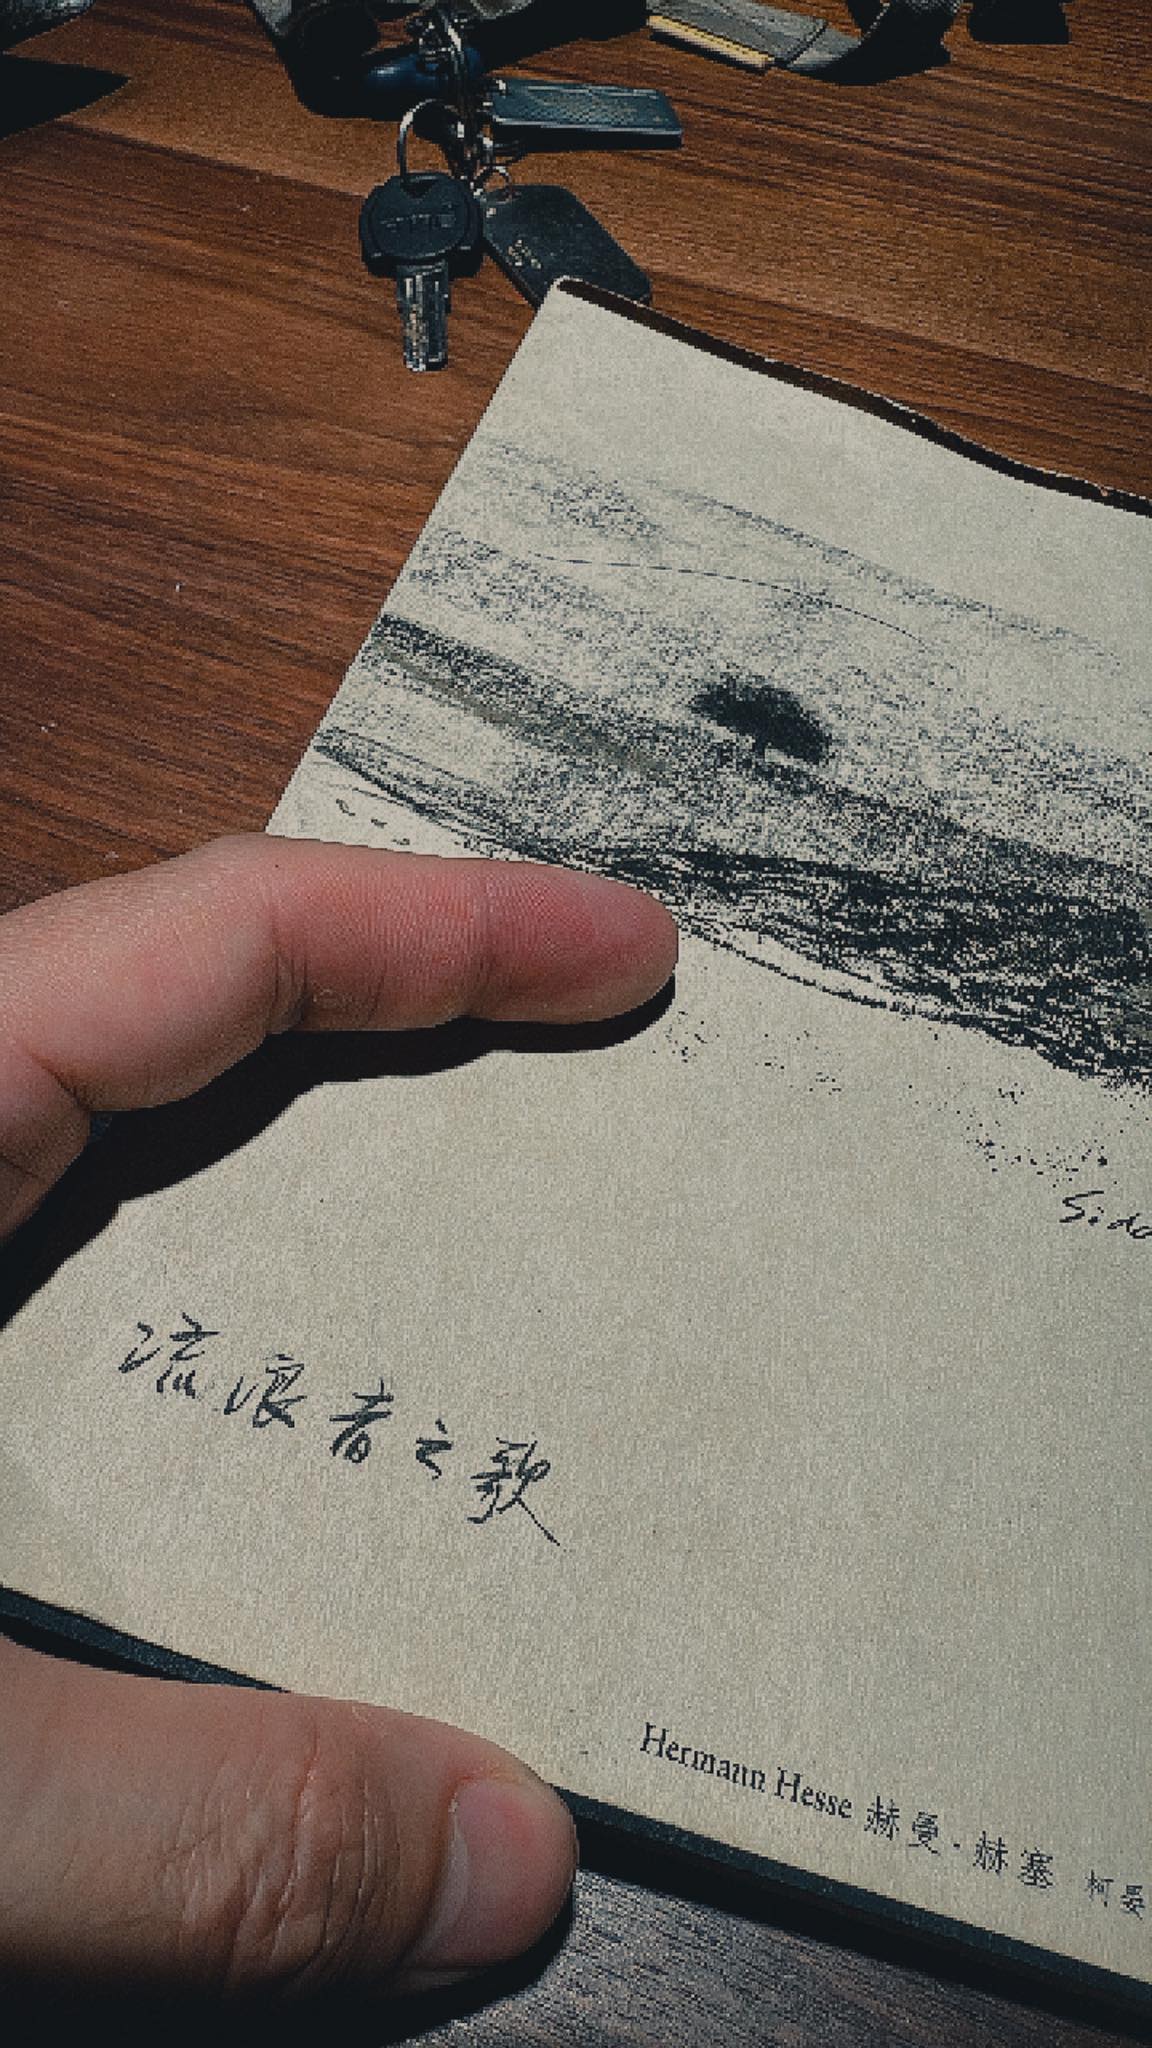 Sidd
流浪者之歌
Hermann Hesse 赫曼・赫塞 柯晏